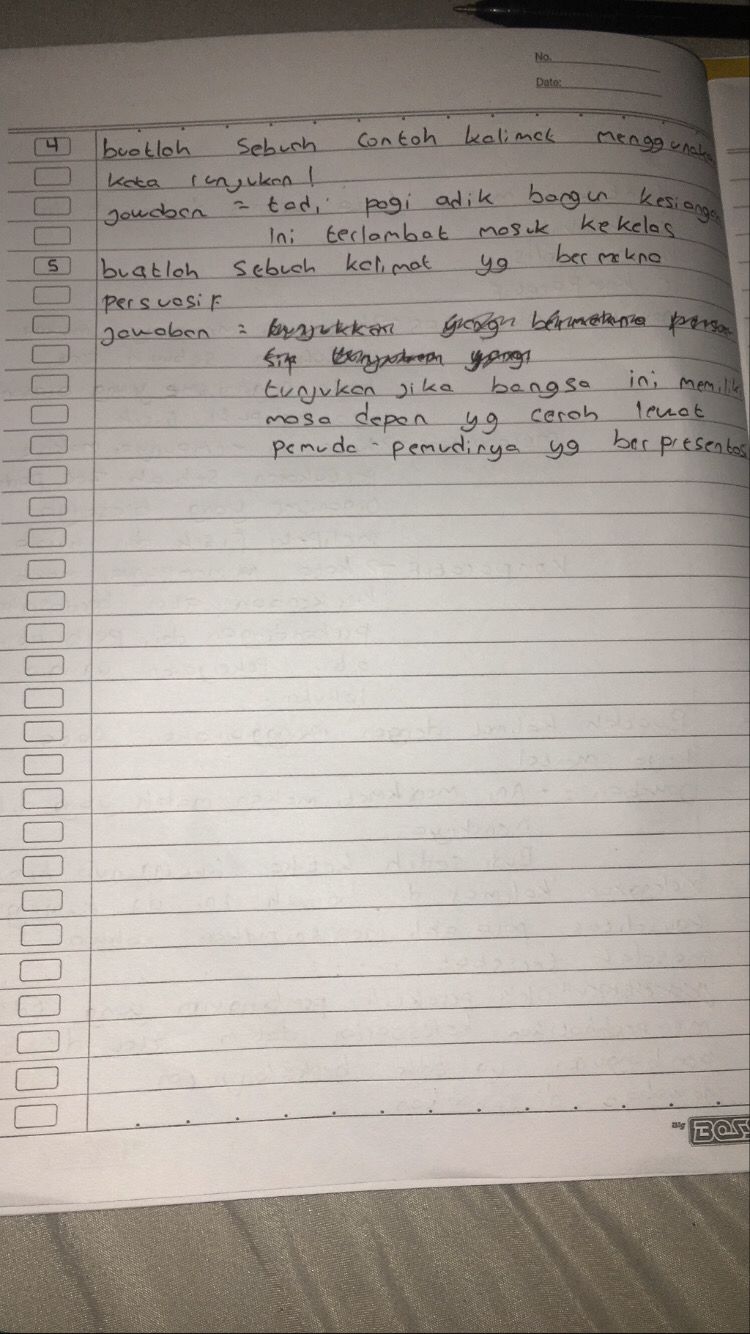 No.
Date:
4 buatlah sebuah contoh kalimat menggunaka
kata runjukan!
jawaban = tadi pagi adik bangun kesiangan
Ini terlambat masuk kekelas
5 buatlah sebuah kalimat yg bermakna
persuasif
jawaban =
tunjukan jika bangsa ini memilik
masa depan yg cerah lewat
pemuda - pemudinya yg berpresentas
Big BOSS